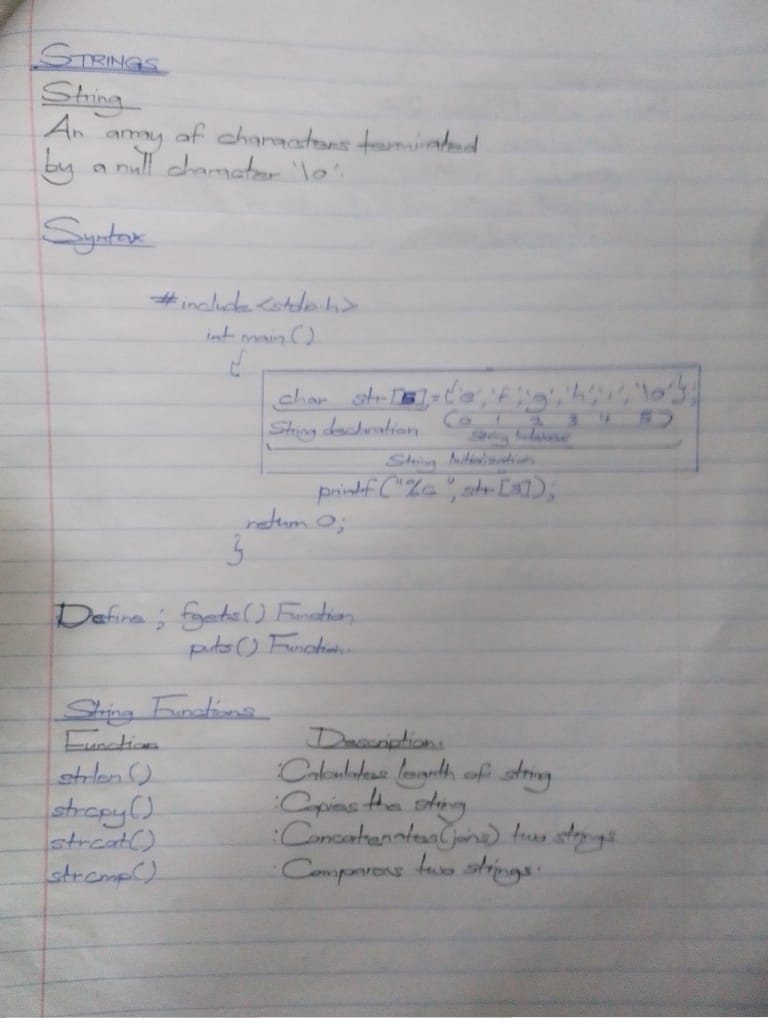 STRINGS
String
An array of characters terminated
by a null character '\0'.
Syntax
#include <stdio.h>
int main()
{
char str[5]={'e','f','g','h','i','\0'};
String declaration (0 1 2 3 4 5)
String
String Initialisation
printf("%c", str[3]);
return 0;
}
Define ; fgets() Function
puts() Function.
String Functions
Function Description.
strlen() :Calculates length of string
strcpy() :Copies the string
strcat() :Concatenates(joins) two strings
strcmp() :Compares two strings.